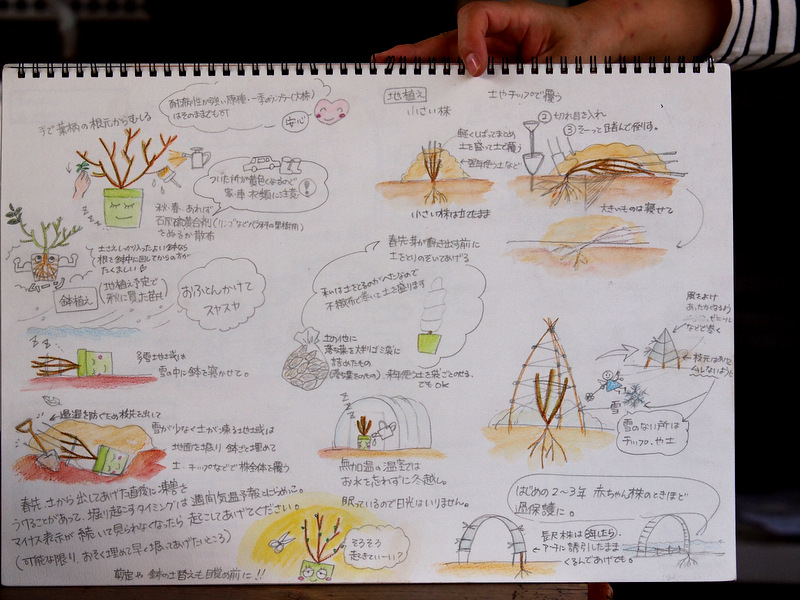 手で葉柄の根元からむしる
耐寒性が強い原種・一季オンラー(大株)
はそのままでも可
安心
ついた所が黄色くなるので
家・車・衣類に注意
秋・春 あれば
石灰硫黄合剤(リンゴなどバラ科の果樹用)
をぬるか散布
zzz
土さえしっかり入ったよい鉢なら
根を鉢中に回してからの方が
たくましい
鉢植え
(地植え予定で
秋に買った苗も)
おふとんかけて
スヤスヤ
zz
多雪地域は
雪の中に鉢を寝かせて。
過湿を防ぐため枝先を出して
雪が少なく土が凍る地域は
地面を掘り 鉢ごと埋めて
土・チップなどで株全体を覆う
春先 土から出してあげた直後に凍害を
うけることがあって、掘り起こすタイミングは週間気温予報とにらめっこ。
マイナス表示が続いて見られなくなったら起こしてあげてください。
(可能な限り、おそく埋めて早く掘ってあげたいところ)
剪定や鉢の土替えも目覚めの前に!!
そろそろ
起きていーい?
地植え
小さい株
軽くしばってまとめ
土を盛って土で覆う
小さい株は立てたまま
土やチップで覆う
② 切れ目を入れ
③ そーっと踏んで倒す。
大きいものは寝せて
春先 芽が動き出す前に
土をとりのぞいてあげる
私は土をとるのがへたなので
不織布で巻いて土を盛ります
土の他に
落ち葉を大判ゴミ袋に
詰めたもの
でもOK
zzz
無加温の温室では
お水を忘れずに冬越し。
眠っているので日光はいりません。
風をよけ
あたたかくなるよう
などで巻く
根元はあいて
ムレないように
雪
雪のない所は
チップ、や土
はじめの2~3年 赤ちゃん株のときほど
過保護に。
長尺株は
アーチに誘引したまま
くるんであげても。